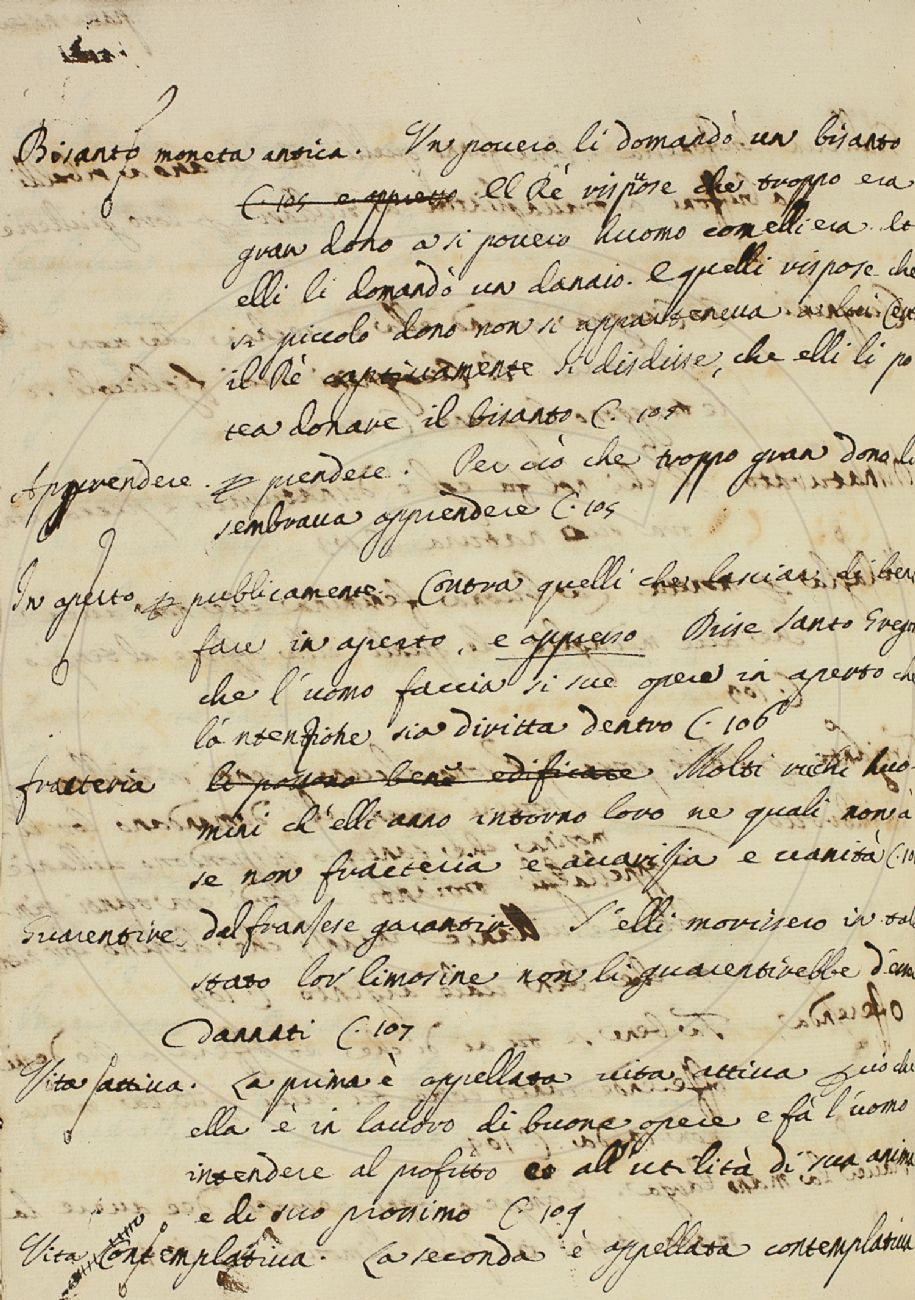 Bisanto moneta antica. Un povero li domandò un bisanto
C. 105 e appresso El Rè rispose che troppo era
gran dono a si povero huomo com elli era. Et
elli li domandò un danaio. E quelli rispose che
si piccolo dono non si apparteneva a lui
il Rè captivamente si disdisse, che elli li po
tea donare il bisanto C. 105
Apprendere. prendere. Per ciò che troppo gran dono li
sembrava apprendere C. 105
In aperto publicamente. Contra quelli che lasciano di bene
fare in aperto, e appresso Dise Santo Gregor
che l'uomo faccia si sue opere in aperto che
la ntentione sia diritta dentro C. 106
fracteria li possano bene edificare Molti richi huo-
mini ch'elli anno intorno loro ne quali non à
se non fracteria e avarissia e vanità C. 10
Guarentire. dal fransese garantir. S'elli morissero in tal
stato lor limosine non li guarentirebbe d'esser
dannati C. 107
Vita attiva. La prima è appellata vita attiva
ella è in lavoro di buone opere e fà l'uomo
intendere al profitto et all'utilità di sua anima
e di suo prossimo C. 109
Vita Contemplativa. La seconda è appellata contemplativa